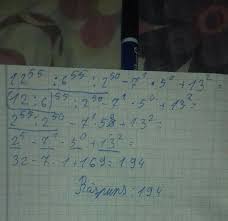 12⁵⁵ : 6⁵⁵ : 2⁵⁰ - 7¹ · 5⁰ + 13² =
(12 : 6)⁵⁵ : 2⁵⁰ - 7¹ · 5⁰ + 13² =
2⁵⁵ : 2⁵⁰ - 7¹ · 5⁰ + 13² =
2⁵ - 7¹ - 5⁰ + 13² =
32 - 7 - 1 + 169 = 194
194